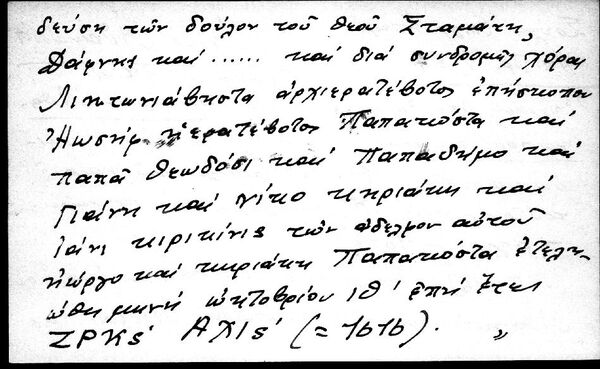 δεύση τῶν δούλον τοῦ θεοῦ Σταμάτη,
Δάφνης καί ...... καί διά συνδρομῆς χόρας
Λιητωνιάβηστα ἀρχιερατέβοτος ἐπήσκοπου
Ἠωσήφ ἠερατέβοτος Παπακόστα καί
παπᾶ Θεωδόσι καί Παπαδήμο καί
Γιάνη καί νίκο κηριάκη καί
Ιάνι κιρικίνις τῶν ἀδελφον αὐτοῦ
Γιώργο καί κηριάκη Παπακόστα ἐτελη-
ώθη μηνή ὠκτοβρίου ιθ' ἐπή ἔτει
ΖΡΚς' ΑΧΙς' (= 1616). "